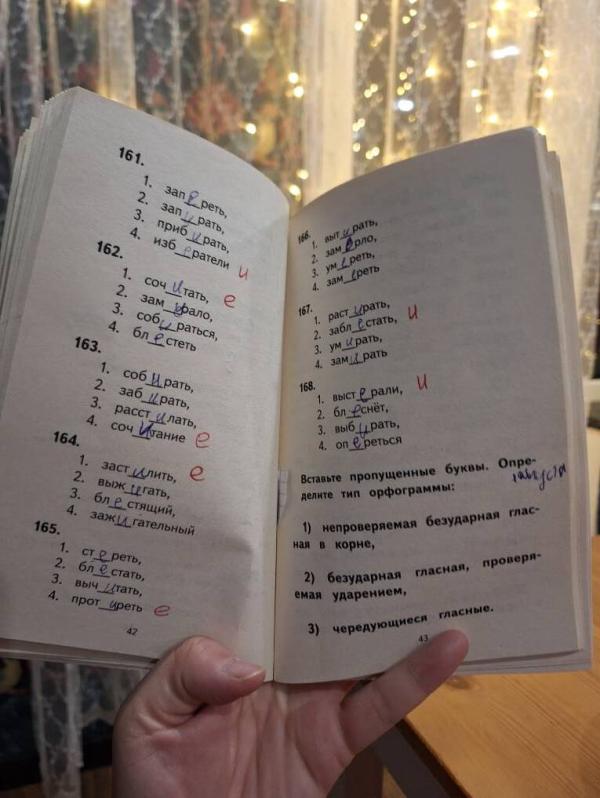 161.
1. зап е реть,
2. зап и рать,
3. приб и рать,
4. изб е ратели и
162.
1. соч и тать, е
2. зам и рало,
3. соб и раться,
4. бл е стеть
163.
1. соб и рать,
2. заб и рать,
3. расст и лать,
4. соч и тание е
164.
1. заст и лить, е
2. выж и гать,
3. бл е стящий,
4. заж и гательный
165.
1. ст е реть,
2. бл е стать,
3. выч и тать,
4. прот и реть е
42
166.
1. выт и рать,
2. зам е рло,
3. ум е реть,
4. зам е реть
167.
1. раст и рать,
2. забл е стать, и
3. ум и рать,
4. зам и рать
168.
1. выст е рали, и
2. бл е снёт,
3. выб и рать,
4. оп е реться
Вставьте пропущенные буквы. Опре-
делите тип орфограммы:
1) непроверяемая безударная глас-
ная в корне,
2) безударная гласная, проверя-
емая ударением,
3) чередующиеся гласные.
43